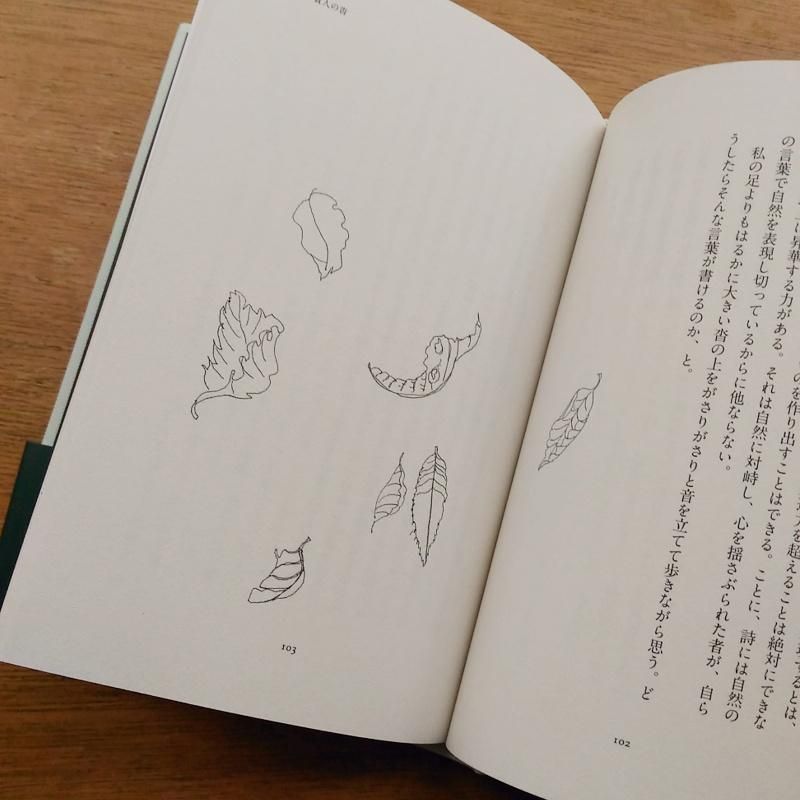 するとは、
を超えることは絶対にできな
のを作り出すことはできる。ことに、詩には自然の
に昇華する力がある。それは自然に対峙し、心を揺さぶられた者が、自ら
の言葉で自然を表現し切っているからに他ならない。
私の足よりもはるかに大きい沓の上をがさりがさりと音を立てて歩きながら思う。ど
うしたらそんな言葉が書けるのか、と。
102
人の沓
103